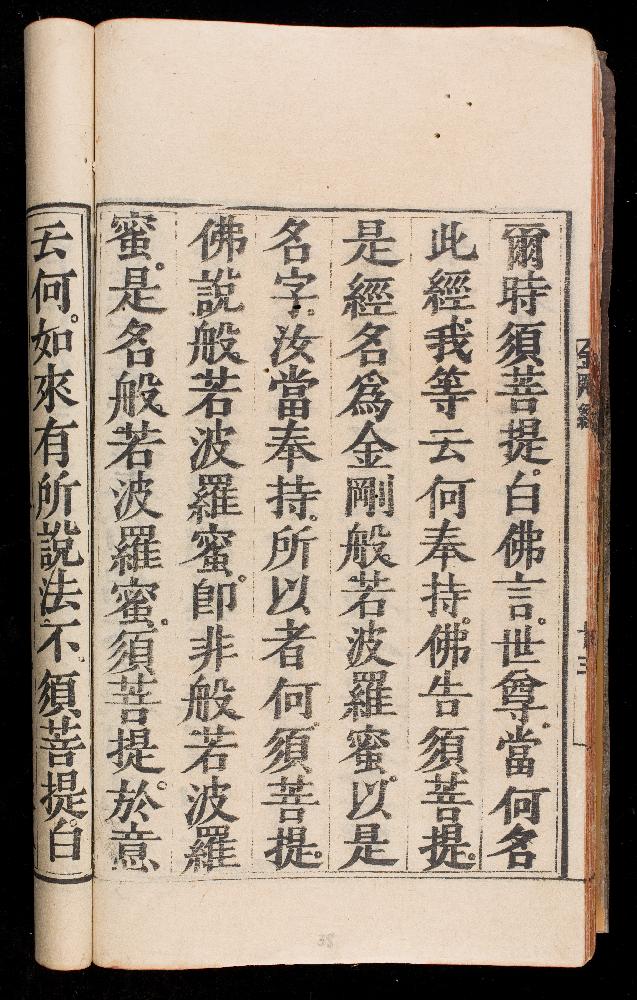 爾時須菩提。白佛言。世尊。當何名
此經。我等云何奉持。佛告須菩提。
是經名爲金剛般若波羅蜜。以是
名字。汝當奉持。所以者何。須菩提。
佛說般若波羅蜜。卽非般若波羅
蜜。是名般若波羅蜜。須菩提。於意
云何。如來有所說法不。須菩提。白
金剛經
38